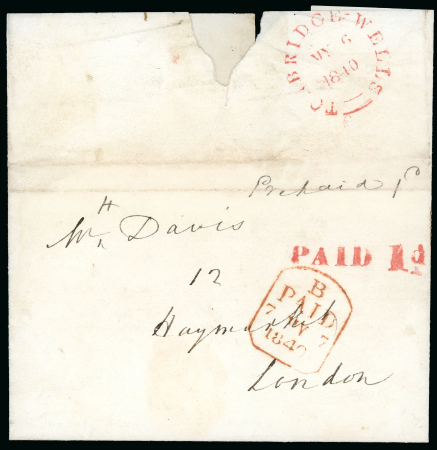 TONBRIDGE-WELLS
MY 6
1840
Prepaid 1d
Mr H Davis
PAID 1d
12
B
PAID
7 MY 7
1840
Haymarket
London